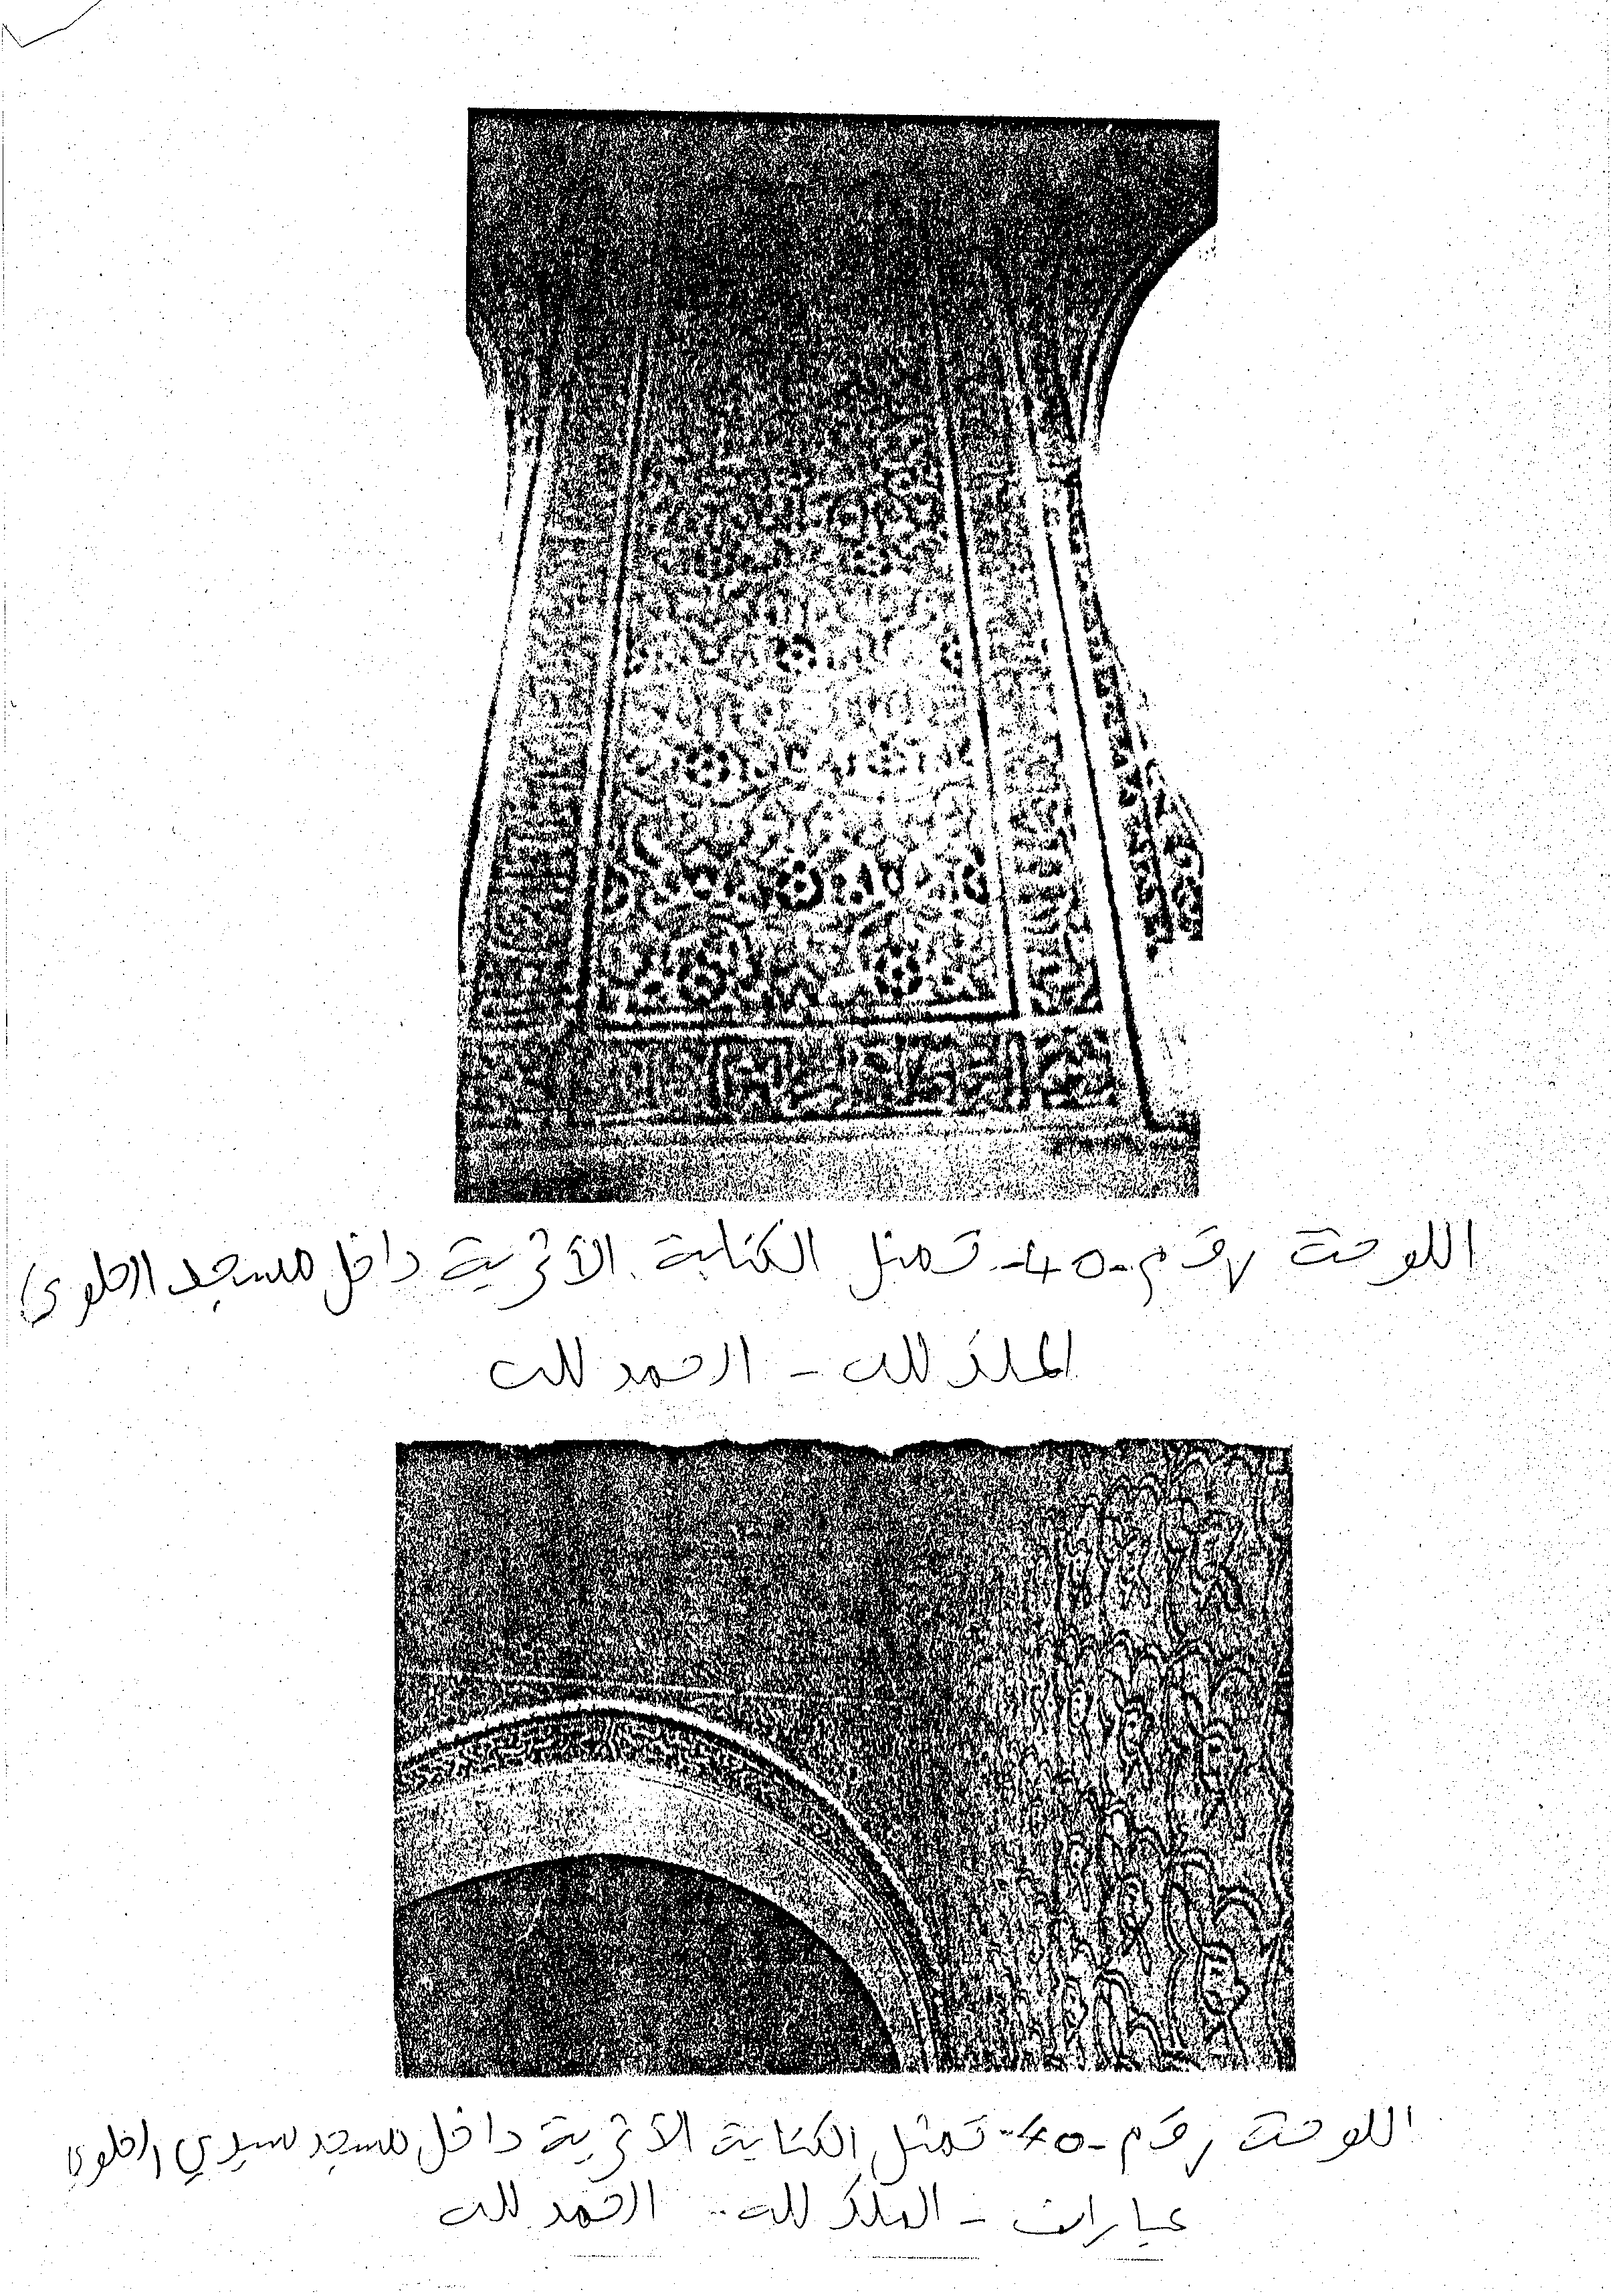 اللوحة رقم -40- تمثل الكتابة الأثرية داخل مسجد الحلوي
الملك لله - الحمد لله
اللوحة رقم -40- تمثل الكتابة الأثرية داخل مسجد سيدي الحلوي
عبارات - الملك لله .. الحمد لله